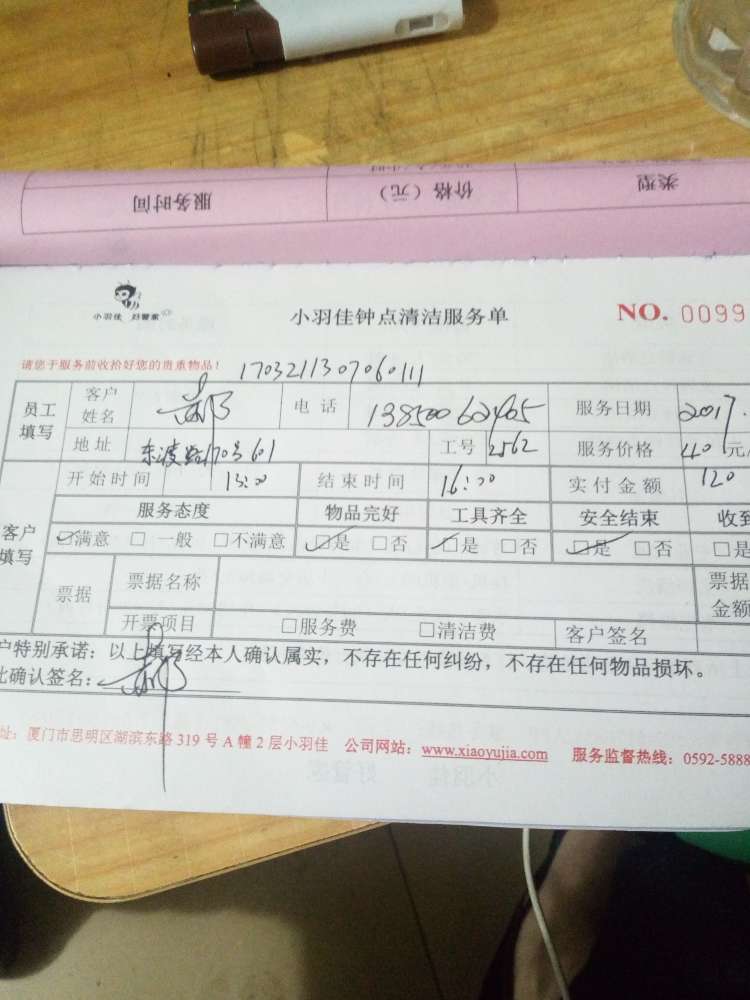 服务时间 价格（元） 类型
小羽佳 好管家
小羽佳钟点清洁服务单 NO. 0099
请您于服务前收拾好您的贵重物品！ 1703211307060111
员工填写 客户姓名 电话 13850062405 服务日期 2017.
地址 东渡路170号601 工号 2562 服务价格 40 元/
客户填写 开始时间 13:00 结束时间 16:00 实付金额 120
服务态度 物品完好 工具齐全 安全结束 收到
☑满意 □一般 □不满意 ☑是 □否 ☑是 □否 ☑是 □否 □是
票据 票据名称 票据金额
开票项目 □服务费 □清洁费 客户签名
户特别承诺：以上填写经本人确认属实，不存在任何纠纷，不存在任何物品损坏。
此确认签名：
址：厦门市思明区湖滨东路319号A幢2层小羽佳 公司网站：www.xiaoyujia.com 服务监督热线：0592-5888